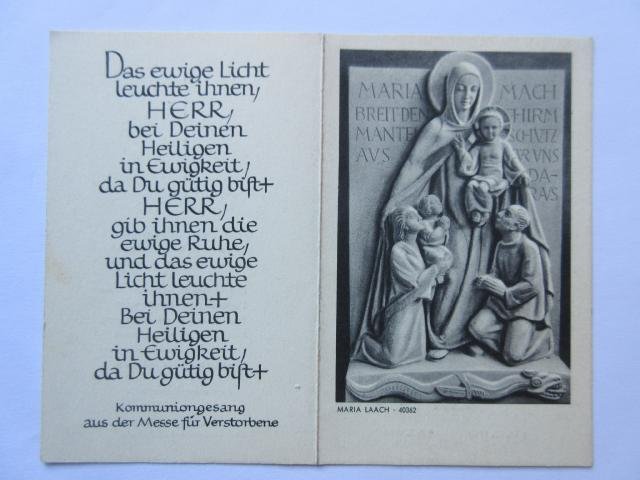 Das ewige Licht
leuchte ihnen,
HERR,
bei Deinen
Heiligen
in Ewigkeit,
da Du gütig bist+
HERR,
gib ihnen die
ewige Ruhe,
und das ewige
Licht leuchte
ihnen+
Bei Deinen
Heiligen
in Ewigkeit,
da Du gütig bist+
Kommuniongesang
aus der Messe für Verstorbene
MARIA MACH
BREIT DEN
MANTEL
AVS
MARIA LAACH - 40362